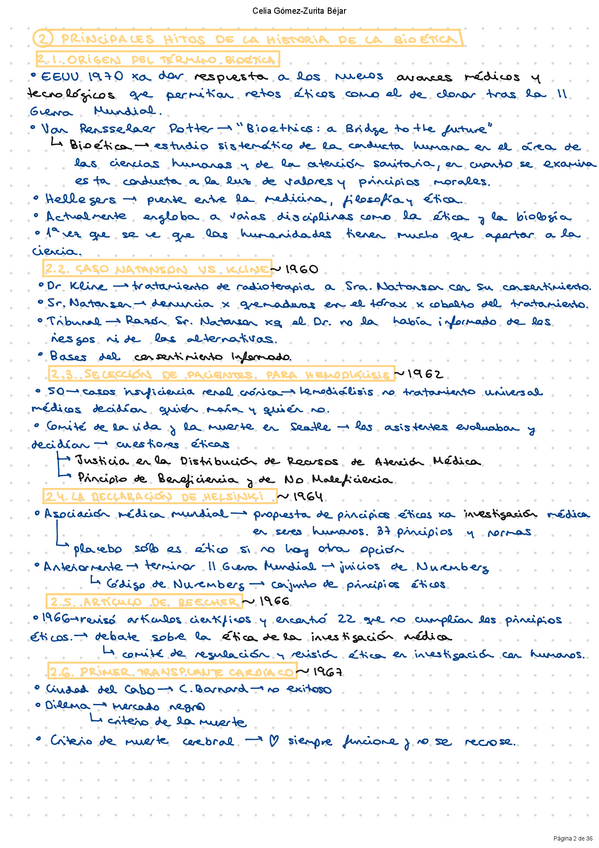 Celia Gómez-Zurita Béjar
2 PRINCIPALES HITOS DE LA HISTORIA DE LA BIOÉTICA
2.1. ORIGEN DEL TÉRMINO BIOÉTICA
• EEUU 1970 xa dar respuesta a los nuevos avances médicos y
tecnológicos que permitían retos éticos como el de clonar tras la II
Guerra Mundial.
• Van Rensselaer Potter → "Bioethics: a Bridge to the future"
↳ Bioética → estudio sistemático de la conducta humana en el área de
las ciencias humanas y de la atención sanitaria, en cuanto se examina
esta conducta a la luz de valores y principios morales.
• Hellegers → puente entre la medicina, filosofía y ética.
• Actualmente engloba a vaias disciplinas como la ética y la biología
• 1ª vez que se ve que las humanidades tienen mucho que aportar a la
ciencia.
2.2. CASO NATANSON VS. KLINE ~ 1960
• Dr. Kline → tratamiento de radioterapia a Sra. Natanson con su consentimiento.
• Sr. Natanson → denuncia x quemaduras en el tórax x cobalto del tratamiento.
• Tribunal → Razón Sr. Natanson xq el Dr. no la había informado de los
riesgos ni de las alternativas.
• Bases del consentimiento informado.
2.3. SELECCIÓN DE PACIENTES PARA HEMODIÁLISIS ~ 1962
• 50 → casos insuficiencia renal crónica → hemodiálisis no tratamiento universal
médicos decidían quién moría y quién no.
• Comité de la vida y la muerte en Seattle → los asistentes evaluaban y
decidían → cuestiones éticas
↳ Justicia en la Distribución de Recursos de Atención Médica
↳ Principio de Beneficiencia y de No Maleficiencia
2.4. LA DECLARACIÓN DE HELSINKI ~ 1964
• Asociación médica mundial → propuesta de principios éticos xa investigación médica
en seres humanos. 37 principios y normas
↳ placebo sólo es ético si no hay otra opción
• Anteriormente → terminar II Guerra Mundial → juicios de Nuremberg
↳ Código de Nuremberg → conjunto de principios éticos
2.5. ARTÍCULO DE BEECHER ~ 1966
• 1966 → revisó artículos científicos y encontró 22 que no cumplían los principios
éticos. → debate sobre la ética de la investigación médica
↳ comité de regulación y revisión ética en investigación con humanos.
2.6. PRIMER TRANSPLANTE CARDÍACO ~ 1967
• Ciudad del Cabo → C. Barnard → no exitoso
• Dilema → mercado negro
↳ criterio de la muerte
• Criterio de muerte cerebral → ♡ siempre funcione y no se necrose.
Página 2 de 36